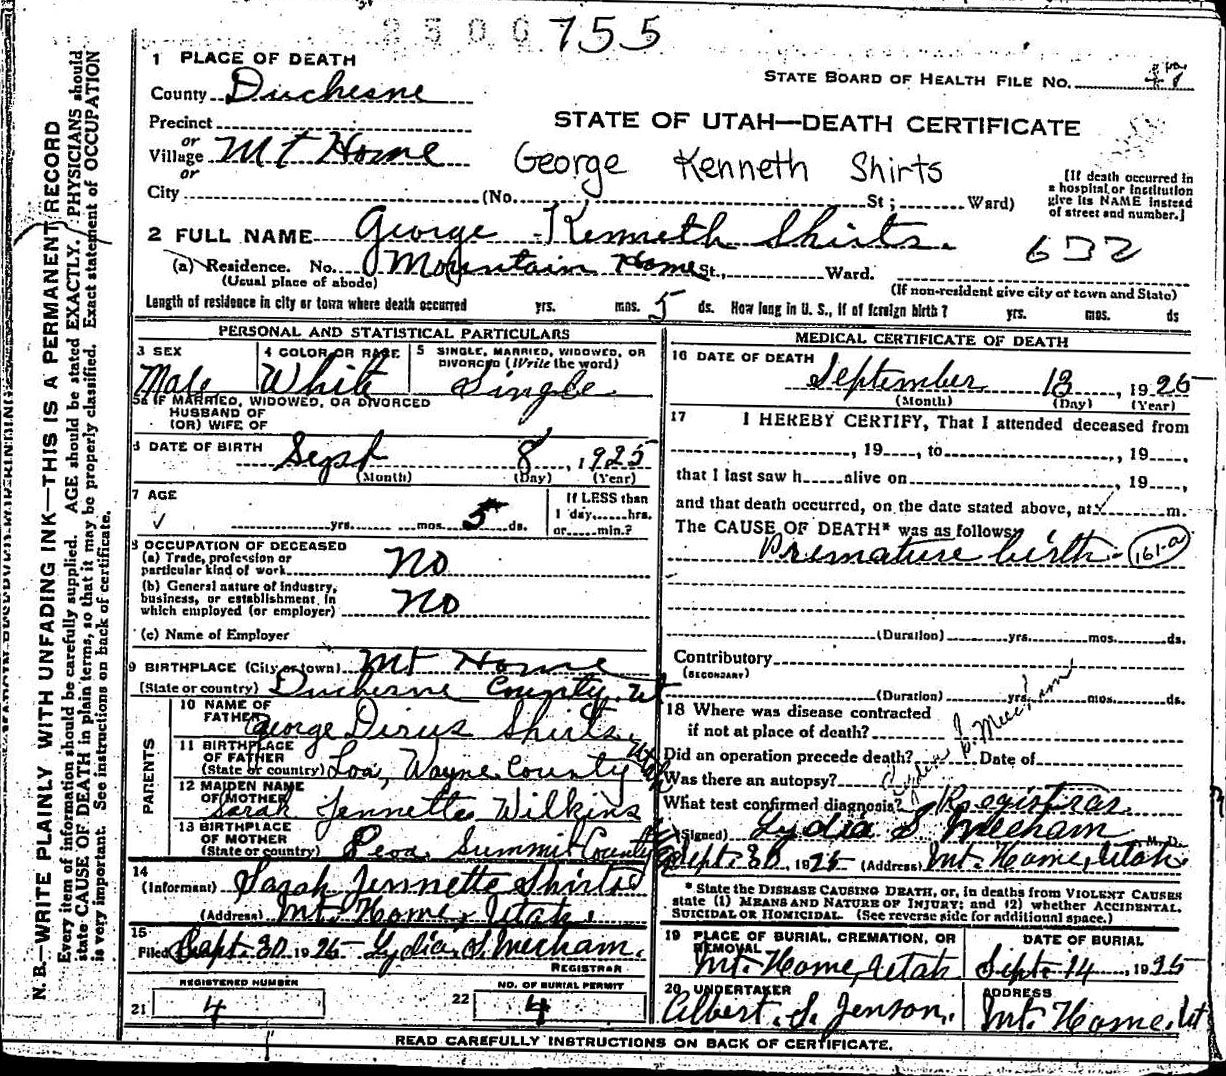 2500755
1 PLACE OF DEATH
STATE BOARD OF HEALTH FILE NO. 47
County Duchesne
STATE OF UTAH—DEATH CERTIFICATE
Precinct
or
Village Mt Home
or
George Kenneth Shirts
[If death occurred in
a hospital or institution
give its NAME instead
of street and number.]
City (No. St; Ward)
2 FULL NAME George Kenneth Shirts.
632
(a) Residence. No. Mountain Home St., Ward.
(Usual place of abode) (If non-resident give city or town and State)
Length of residence in city or town where death occurred yrs. mos. 5 ds. How long in U. S., if of foreign birth? yrs. mos. ds
PERSONAL AND STATISTICAL PARTICULARS
3 SEX
Male
4 COLOR OR RACE
White
5 SINGLE, MARRIED, WIDOWED, OR
DIVORCED (Write the word)
Single
5a IF MARRIED, WIDOWED, OR DIVORCED
HUSBAND OF
(OR) WIFE OF
6 DATE OF BIRTH Sept 8, 1925
(Month) (Day) (Year)
7 AGE
yrs. mos. 5 ds.
If LESS than
1 day, hrs.
or min.?
8 OCCUPATION OF DECEASED
(a) Trade, profession or
particular kind of work No
(b) General nature of industry,
business, or establishment in
which employed (or employer) No
(c) Name of Employer
9 BIRTHPLACE (City or town) Mt Home
(State or country) Duchesne County, Ut
PARENTS
10 NAME OF
FATHER George Dirus Shirts.
11 BIRTHPLACE
OF FATHER
(State or country) Loa, Wayne County Utah
12 MAIDEN NAME
OF MOTHER Sarah Jennette Wilkins
13 BIRTHPLACE
OF MOTHER
(State or country) Peoa, Summit County
14
(Informant) Sarah Jennette Shirts
(Address) Mt. Home, Utah.
15
Filed Sept. 30 1925 Lydia S. Mecham.
REGISTRAR
REGISTERED NUMBER
21 4
NO. OF BURIAL PERMIT
22 4
MEDICAL CERTIFICATE OF DEATH
16 DATE OF DEATH
September 13, 1925
(Month) (Day) (Year)
17 I HEREBY CERTIFY, That I attended deceased from
, 19 , to , 19 ,
that I last saw h alive on , 19 ,
and that death occurred, on the date stated above, at m.
The CAUSE OF DEATH* was as follows:
Premature birth. 161-a
(Duration) yrs. mos. ds.
Contributory
(SECONDARY)
(Duration) yrs. mos. ds.
18 Where was disease contracted
if not at place of death?
Did an operation precede death? Date of
Was there an autopsy?
What test confirmed diagnosis?
Lydia S. Mecham
Registrar.
(Signed) Lydia S Mecham M. D.
Sept. 30, 1925 (Address) Mt. Home, Utah
* State the DISEASE CAUSING DEATH, or, in deaths from VIOLENT CAUSES
state (1) MEANS AND NATURE OF INJURY; and (2) whether ACCIDENTAL,
SUICIDAL OR HOMICIDAL. (See reverse side for additional space.)
19 PLACE OF BURIAL, CREMATION, OR
REMOVAL
Mt. Home, Utah
DATE OF BURIAL
Sept. 14, 1925
20 UNDERTAKER
Albert S. Jenson.
ADDRESS
Mt. Home, Ut
READ CAREFULLY INSTRUCTIONS ON BACK OF CERTIFICATE.
N. B.—WRITE PLAINLY WITH UNFADING INK—THIS IS A PERMANENT RECORD
Every item of information should be carefully supplied. AGE should be stated EXACTLY. PHYSICIANS should
state CAUSE OF DEATH in plain terms, so that it may be properly classified. Exact statement of OCCUPATION
is very important. See instructions on back of certificate.